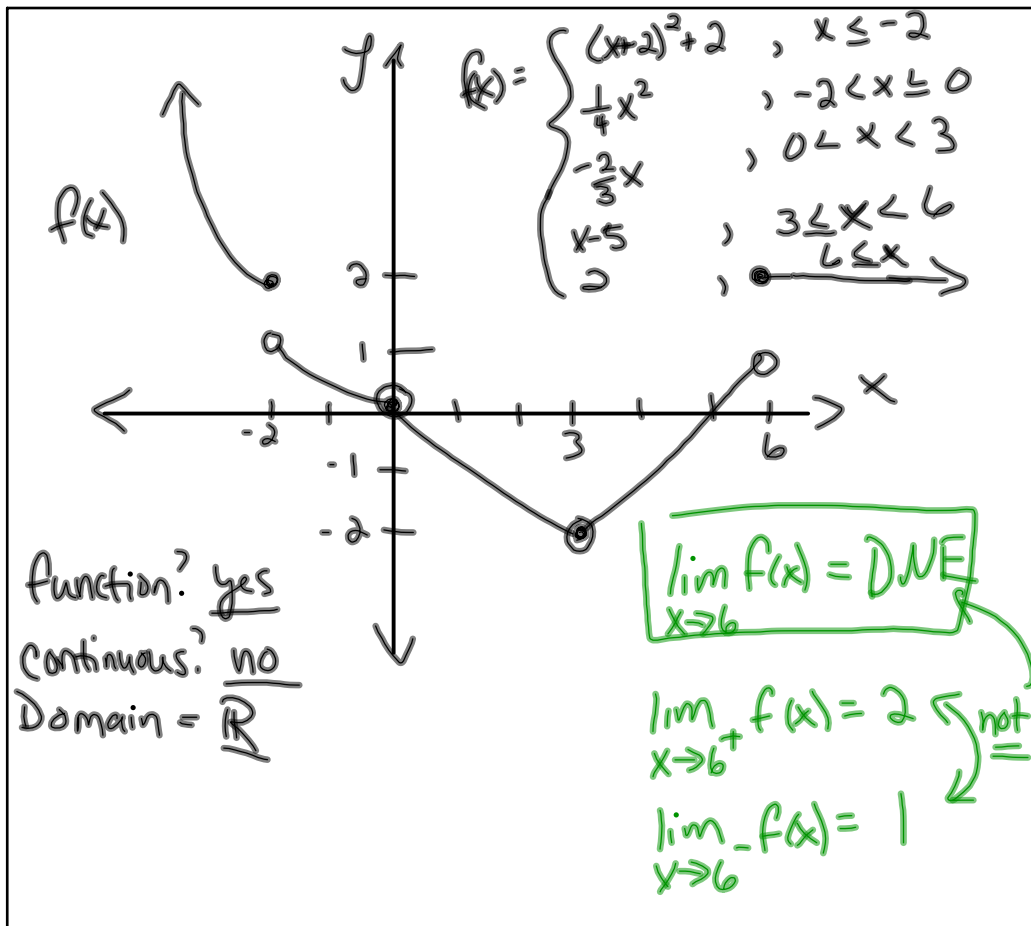 y
f(x) = { (x+2)² + 2 , x ≤ -2
¼x² , -2 < x ≤ 0
-⅔x , 0 < x < 3
x-5 , 3 ≤ x < 6
2 , 6 ≤ x
f(x)
2
1
x
-2
3
6
-1
-2
function? yes
continuous? no
Domain = ℝ
lim f(x) = DNE
x→6
lim f(x) = 2
x→6⁺
not
=
lim f(x) = 1
x→6⁻